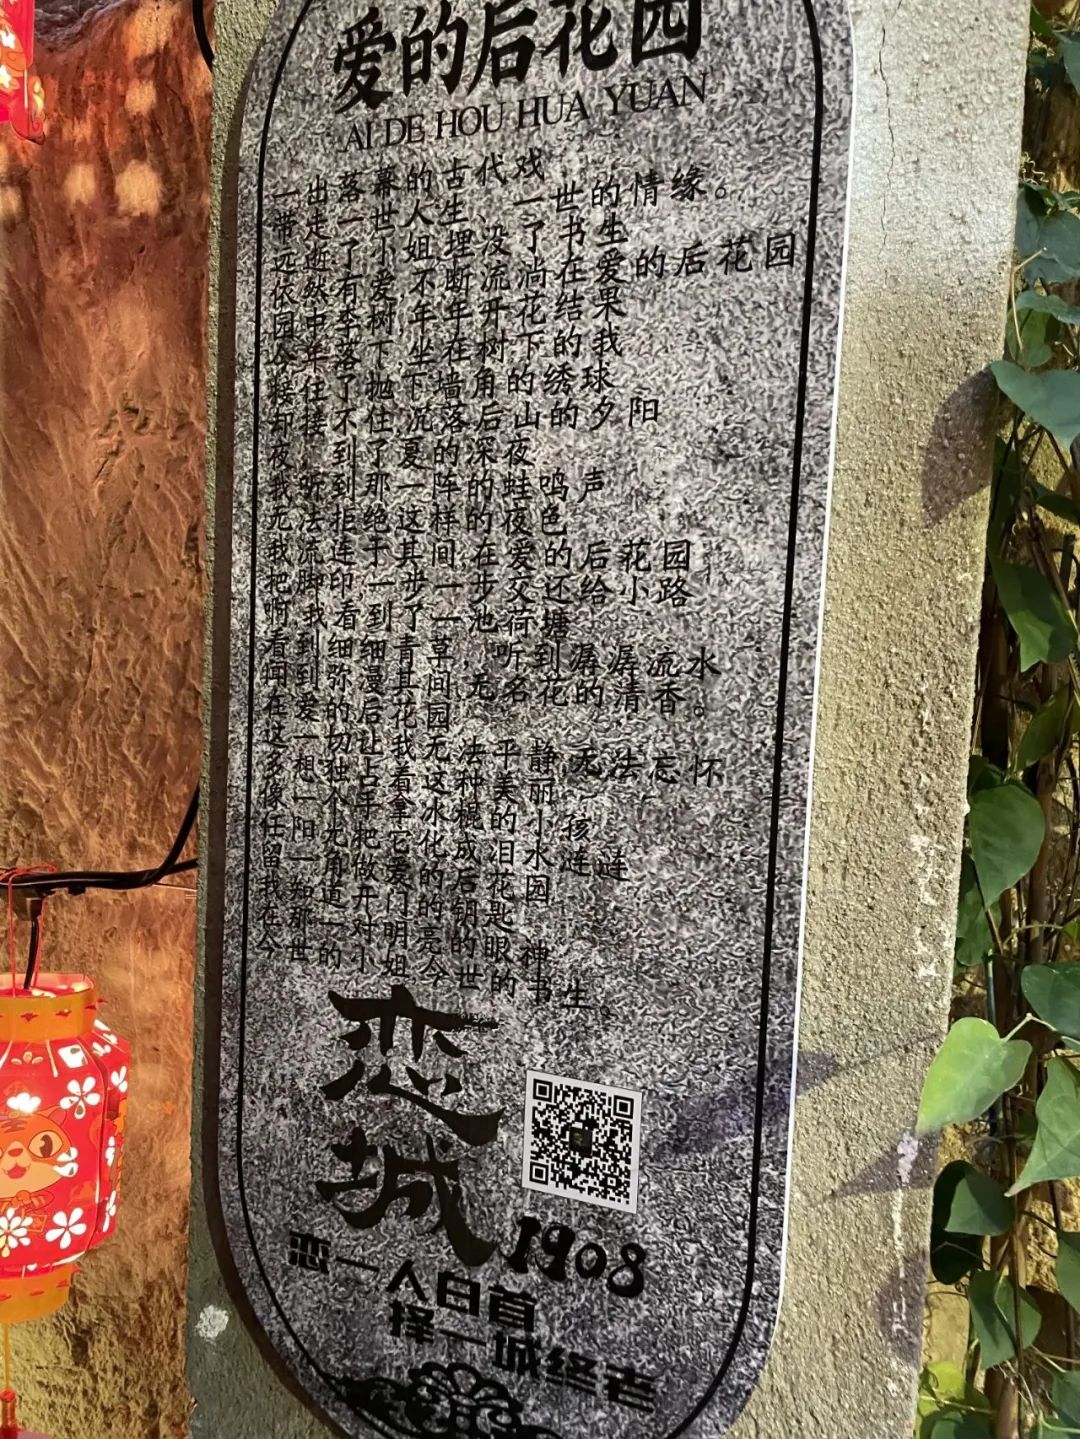 爱的后花园
AI DE HOU HUA YUAN
一出落幕的古代戏
带走一世人生、一世的情缘。
远逝了小姐埋没了书生
依然有爱不断流淌在爱的后花园
园中李树年年开花结果
今年落下坐在树下的我
接住了抛下墙角的绣球
却接不住沉落后山的夕阳
夜,听到了夏的深夜
我听到那一阵阵的蛙鸣声
无法拒绝这样的夜色
我流连于其间在爱的后花园
把脚印一步一步交还给小路
啊我看到了一池荷塘
看到细细青草,听到潺潺流水
闻到弥漫其间无名花的清香。
在爱的后花园
这一切让我无法平静无法忘怀
多想独占着这种美丽
像一个手拿冰棍的小孩
任阳光把它化成泪水涟涟
留一角做爱的后花园
我知道开门的钥匙
在那一对明亮的眼神
今世的小姐今世的书生
恋
城
1908
恋一人白首
择一城终老